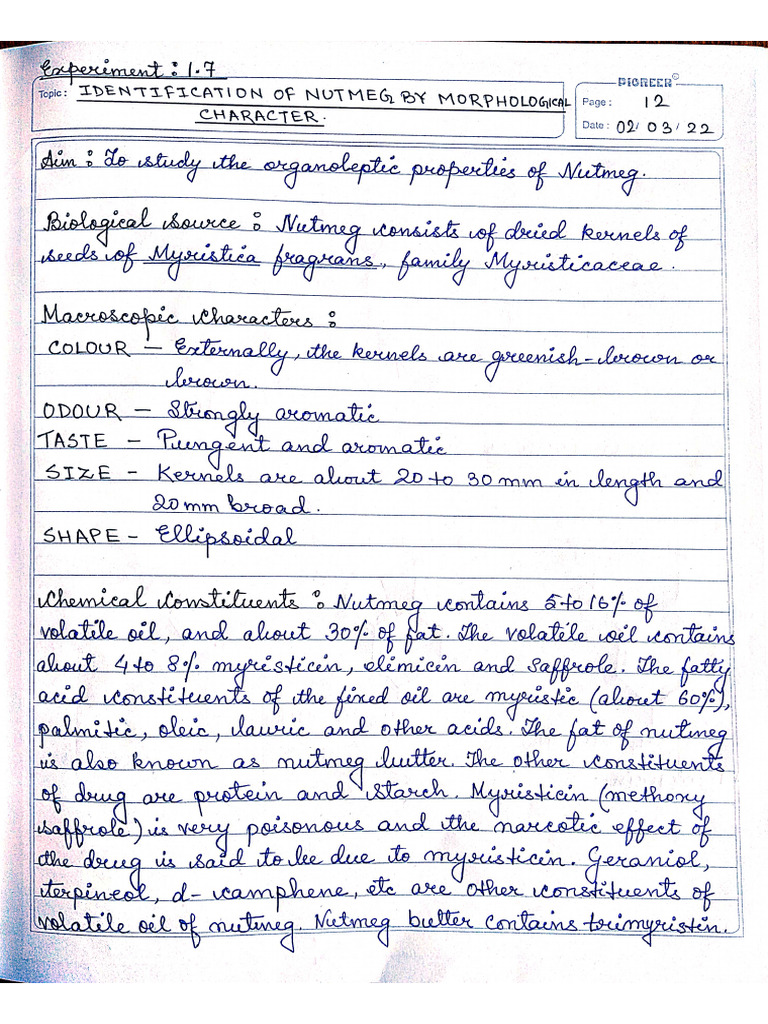 Experiment : 1.7
PIONEER©
Topic : IDENTIFICATION OF NUTMEG BY MORPHOLOGICAL
CHARACTER.
Page : 12
Date : 02/03/22
Aim : To study the organoleptic properties of Nutmeg.
Biological source : Nutmeg consists of dried kernels of
seeds of Myristica fragrans, family Myristicaceae.
Macroscopic characters :
COLOUR – Externally, the kernels are greenish-brown or
brown.
ODOUR – Strongly aromatic
TASTE – Pungent and aromatic
SIZE – Kernels are about 20 to 30 mm in length and
20 mm broad.
SHAPE – Ellipsoidal
Chemical constituents : Nutmeg contains 5 to 16% of
volatile oil, and about 30% of fat. The volatile oil contains
about 4 to 8% myristicin, elimicin and saffrole. The fatty
acid constituents of the fixed oil are myristic (about 60%),
palmitic, oleic, lauric and other acids. The fat of nutmeg
is also known as nutmeg butter. The other constituents
of drug are protein and starch. Myristicin (methoxy
saffrole) is very poisonous and the narcotic effect of
the drug is said to be due to myristicin. Geraniol,
terpineol, d-camphene, etc are other constituents of
volatile oil of nutmeg. Nutmeg butter contains trimyristin.